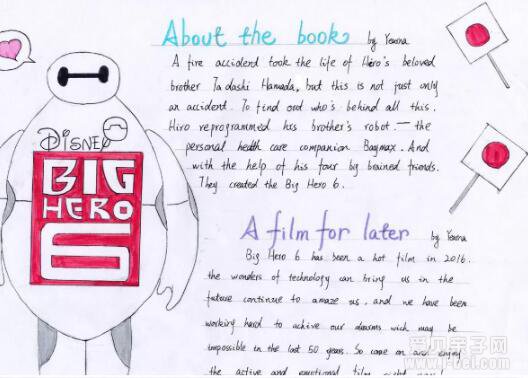 About the book by Yeama
A fire accidend took the life of Hiro's beloved
brother Tadashi Hamada, but this is not just only
an accident. To find out who's behind all this.
Hiro reprogrammed his brother's robot.—the
personal health care companion Baymax. And
with the help of his four by brained friends.
They created the Big Hero 6.
DISNEP
BIG
HERO
6
A film for later by Yeama
Big Hero 6 has been a hot film in 2016.
the wonders of technology can bring us in the
future continue to amaze us, and we have been
working hard to achive our dearms wich may be
impossible in the last 50 years. So come on and enjoy
the active and emotional film right now
爱贝亲子网
i-bei.com